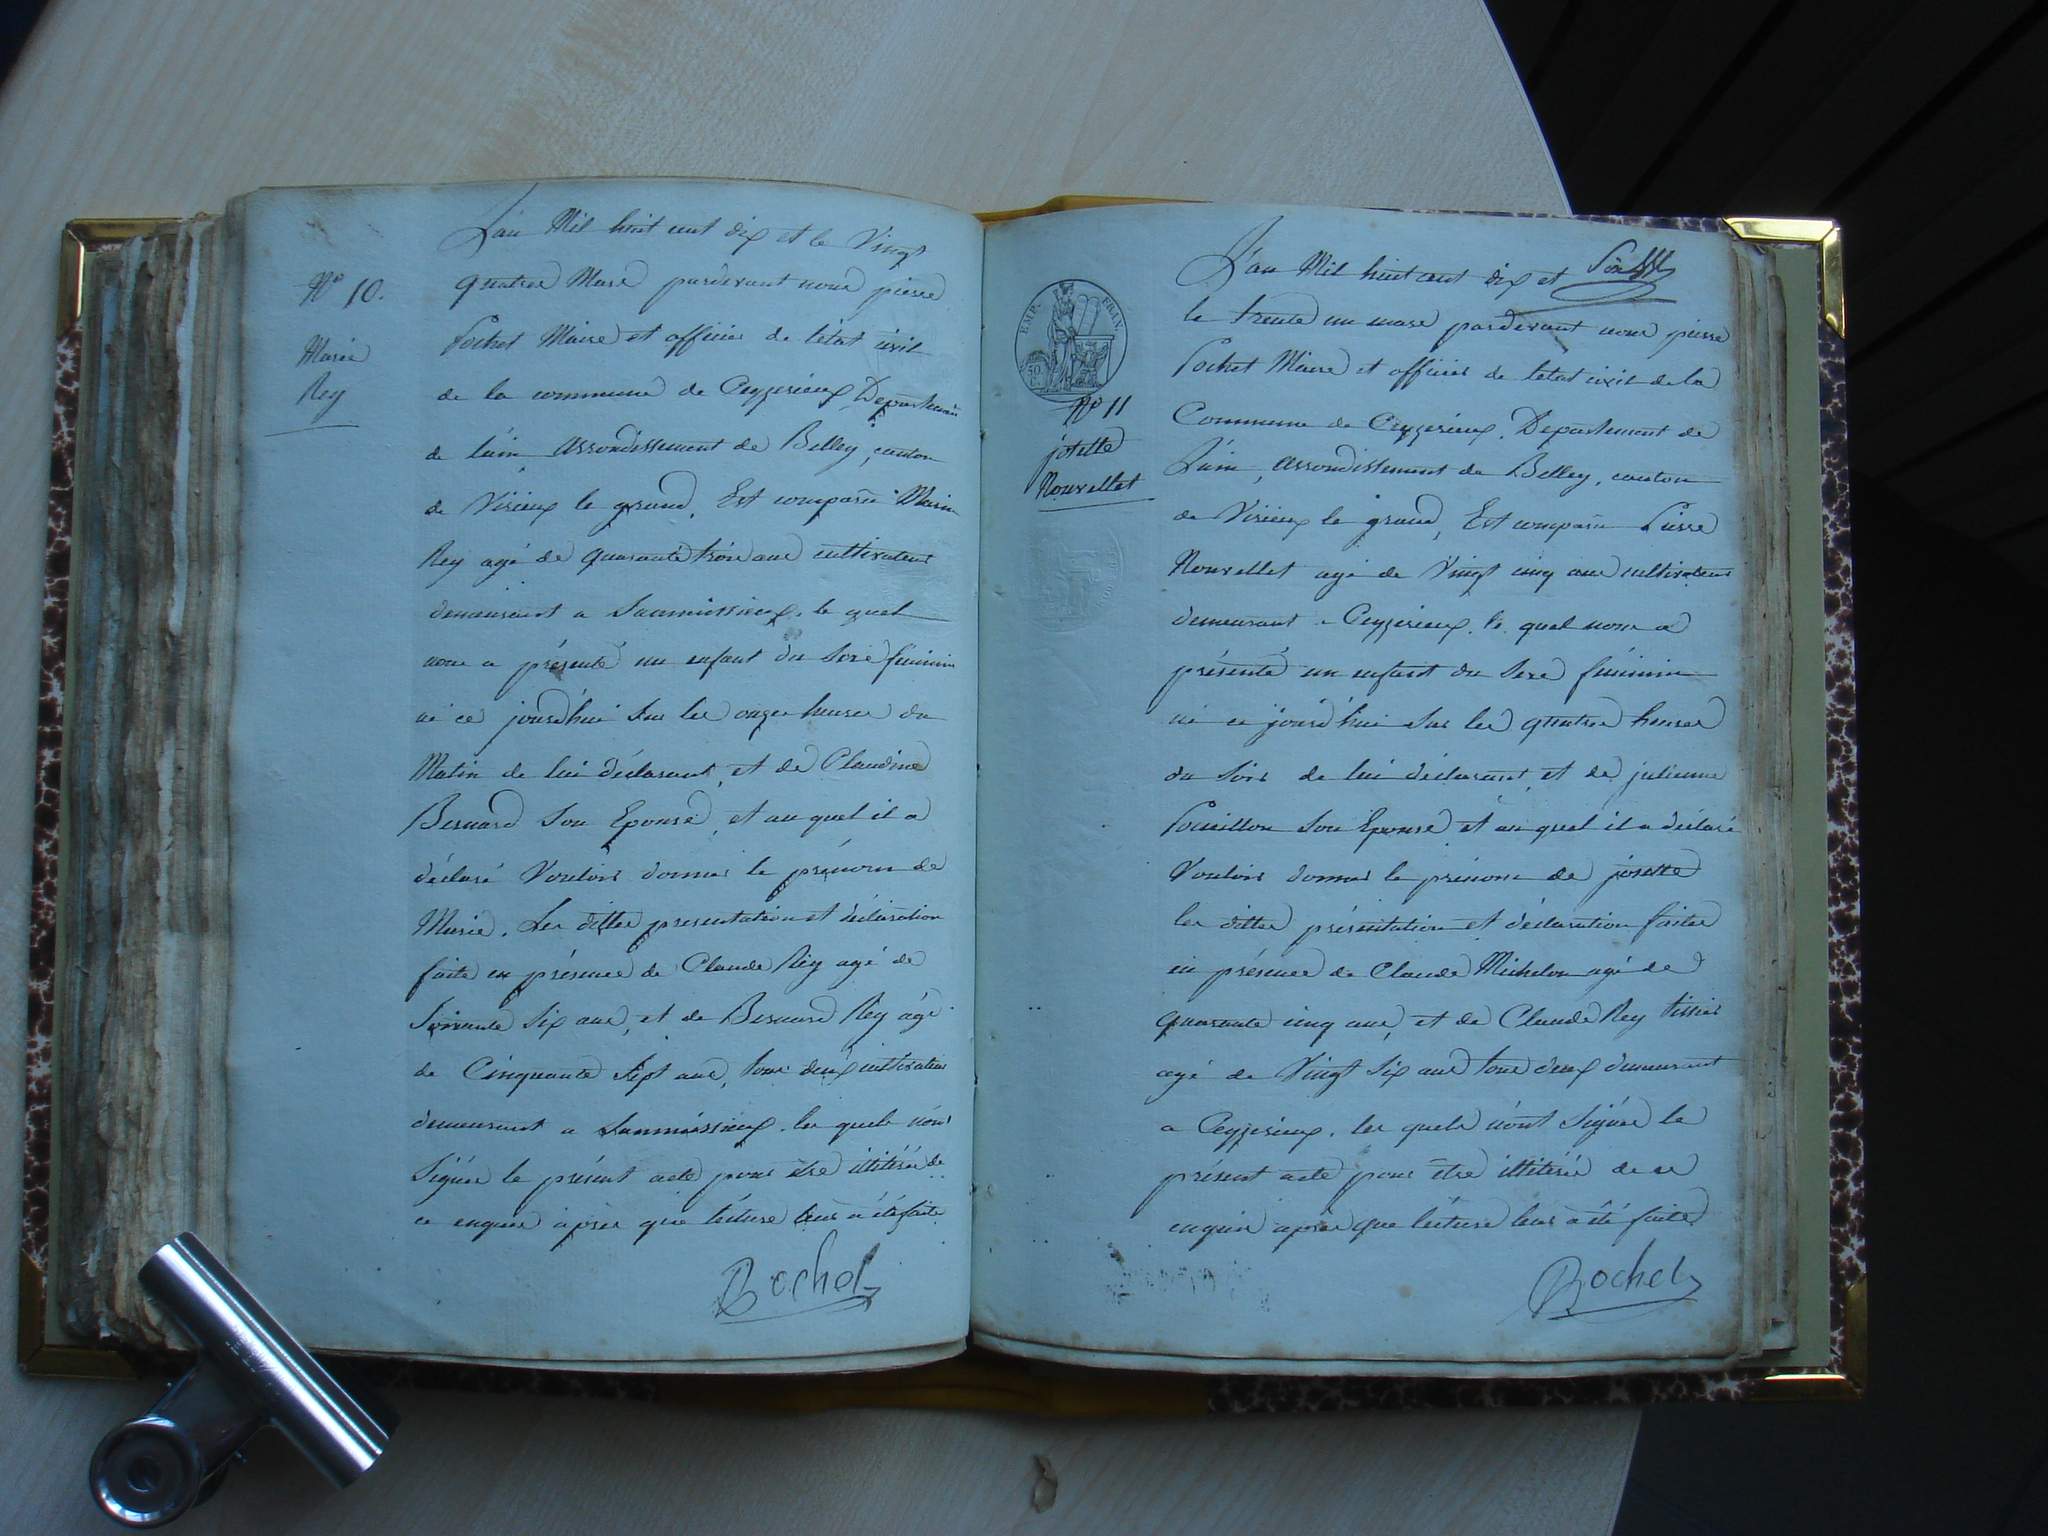 L'an Mil huit cent dix et le Vingt
N° 10.
quatres Mars pardevant nous pierre
Pochet Maire et officier de l'état civil
Marie
Rey
de la commune de Ceyzerieux Departement
de l'ain arrondissement de Belley, canton
de Virieux le grand, Est comparu Marin
Rey agé de quarante trois ans cultivateur
demeurant a Sammissieux. le quel
nous a présenté un enfant du Sexe féminin
né ce jourd'hui sur les onzes heures du
Matin de lui déclarant, et de Claudine
Bernard Son Epouse, et au quel il a
déclaré Vouloir donner le prénom de
Marie. Les dittes presentation et déclaration
faite en présence de Claude Rey agé de
Soixante Six ans, et de Bernard Rey âgé
de Cinquante Sept ans, tous deux cultivateurs
demeurant a Sammissieux. les quels n'ont
Signés le présent acte pour être illitérés de
ce enquis après que lecture leur a été faite
Bochet
L'an Mil huit cent dix et
EMP. FRAN.
50 C.
le trente un mars pardevant nous pierre
Pochet Maire et officier de l'état civil de la
N° 11
josette
Nouvellet
Commune de Ceyzerieux, Departement de
L'ain, arrondissement de Belley, canton
de Virieux le grand, Est comparu Pierre
Nouvellet agé de Vingt cinq ans cultivateur
demeurant a Ceyzerieux. le quel nous a
présenté un enfant du Sexe féminin
né ce jourd'hui sur les quatres heures
du Soir de lui déclarant, et de julienne
Son Epouse, et au quel il a déclaré
Vouloir donner le prénom de josette
les dittes présentation et déclaration faites
en présence de Claude Michelon agé de
quarante cinq ans, et de Claude Rey tissier
agé de Vingt Six ans tous deux demeurant
a Ceyzerieux. les quels n'ont Signés le
présent acte pour être illitérés de ce
enquis après que lecture leur a été faite
Bochet